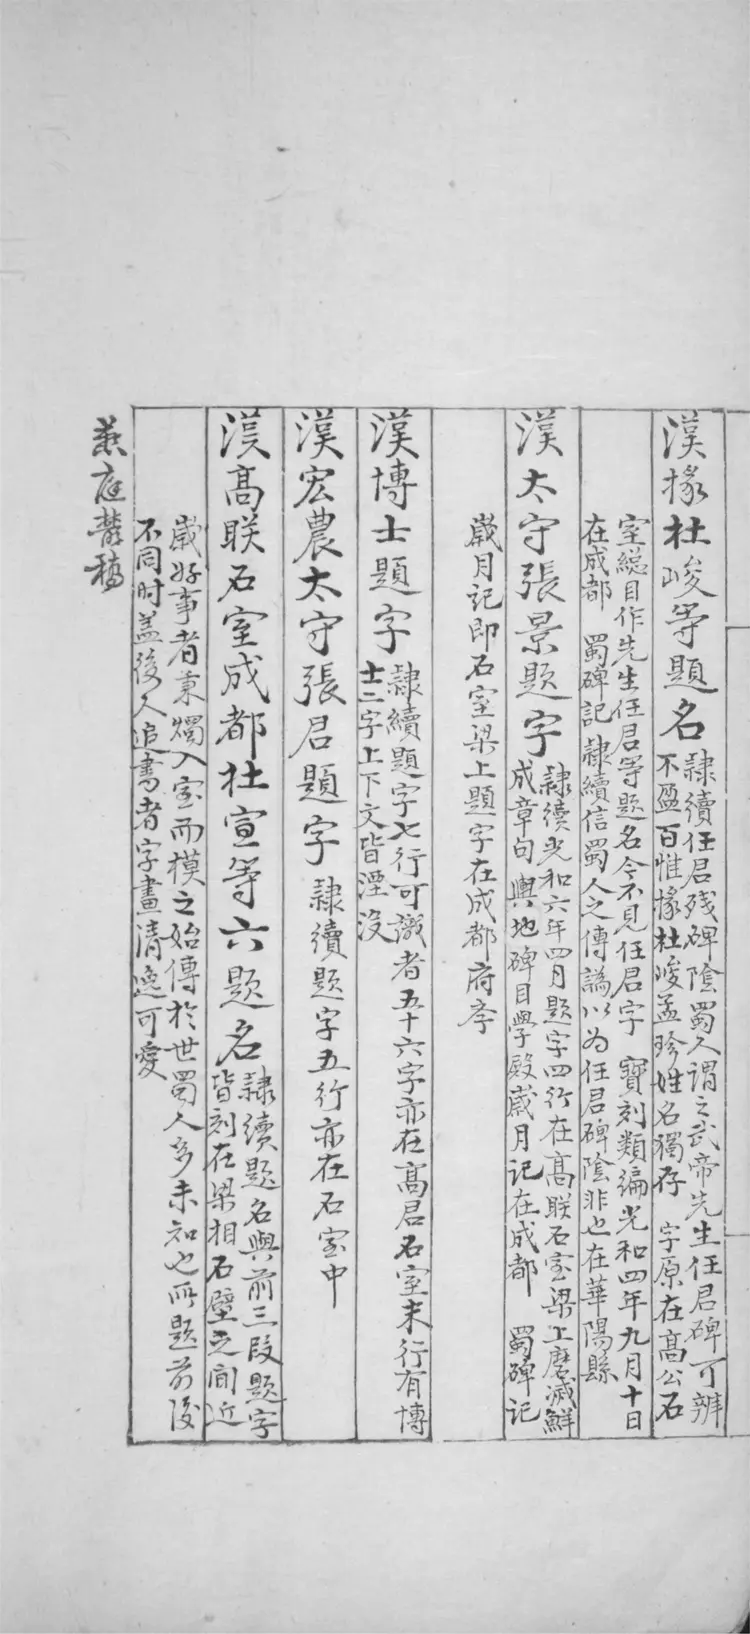 漢掾杜峻等題名
隸續任君殘碑陰蜀人謂之武帝先生任君碑可辨
不盈百惟掾杜峻孟珍姓名獨存 字原在高公石
室總目作先生任君等題名今不見任君字 寶刻類編光和四年九月十日
在成都 蜀碑記 隸續信蜀人之傳譌以為任君碑陰非也在華陽縣
漢太守張景題字
隸續光和六年四月題字四行在高聯石室梁上磨滅鮮
成章句 輿地碑目學殿歲月記在成都 蜀碑記
歲月記即石室梁上題字在成都府李
漢博士題字
隸續題字七行可識者五十六字亦在高君石室末行有博
士二字上下文皆湮沒
漢宏農太守張君題字
隸續題字五行亦在石室中
漢高聯石室成都杜宣等六題名
隸續題名與前三段題字
皆刻在梁相石壁之間近
歲好事者秉燭入室而模之始傳於世蜀人多未知也所題前後
不同时盖後人追書者字畫清逸可愛
庭叢稿